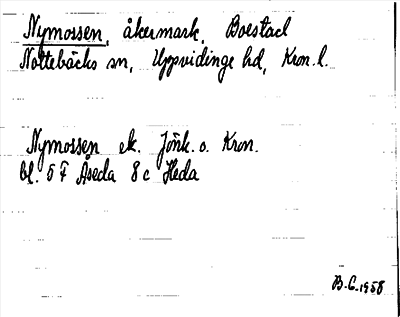 Nymossen, åkermark, Boestad
Nottebäcks sn, Uppvidinge hd, Kron. l.
Nymossen ek. Jönk. o. Kron.
bl. 5 F Åseda 8 c Heda
B.C. 1958